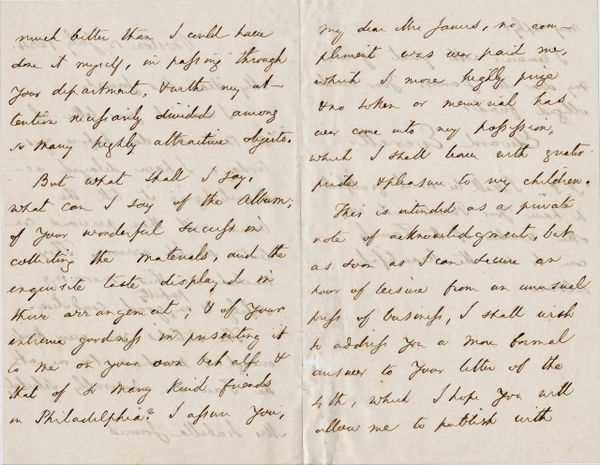 much better than I could have
done it myself, in passing through
your department, & with my at-
tention necessarily divided among
so many highly attractive objects.
But what shall I say,
what can I say of the Album;
of your wonderful success in
collecting the materials, and the
exquisite taste displayed in
their arrangement, & of your
extreme goodness in presenting it
to me on your own behalf &
that of so many kind friends
in Philadelphia? I assure you,
my dear Mrs James, no com-
pliment was ever paid me,
which I more highly prize
& no token or memorial has
ever come into my possession,
which I shall leave with greater
pride & pleasure to my children.
This is intended as a private
note of acknowledgment, but
as soon as I can secure an
hour of leisure from an unusual
press of business, I shall wish
to address you a more formal
answer to your letter of the
4th, which I hope you will
allow me to publish with